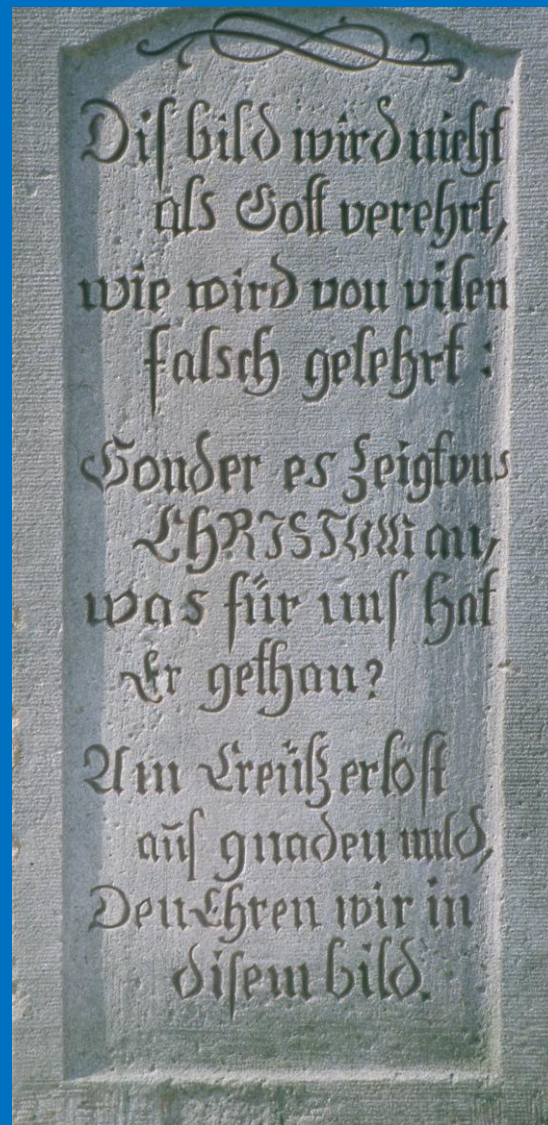 Diſ bild wird nicht
als Gott verehrt,
wie wird von vilen
falsch gelehrt:
Sonder es zeigt vns
CHRISTUM an,
was für unſ hat
Er gethan?
Am Creütz erlöſt
auſ gnaden mild,
Den Ehren wir in
diſem bild.